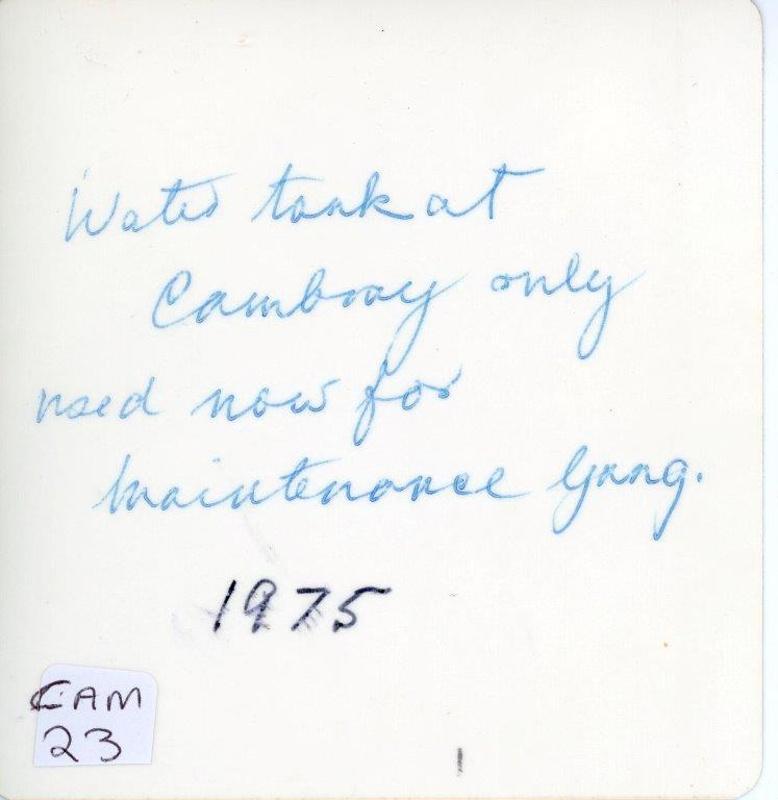 Water tank at
Cambray only
used now for
Maintenance Gang.
1975
CAM
23